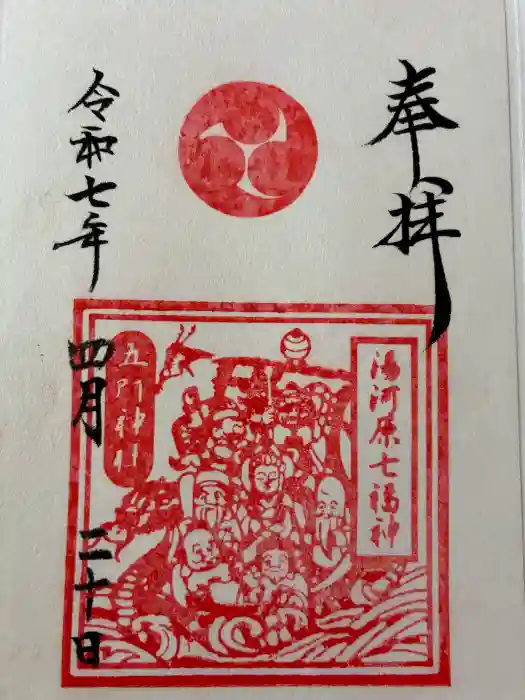 奉拝
湯河原七福神
五所神社
令和七年
四月
二十日